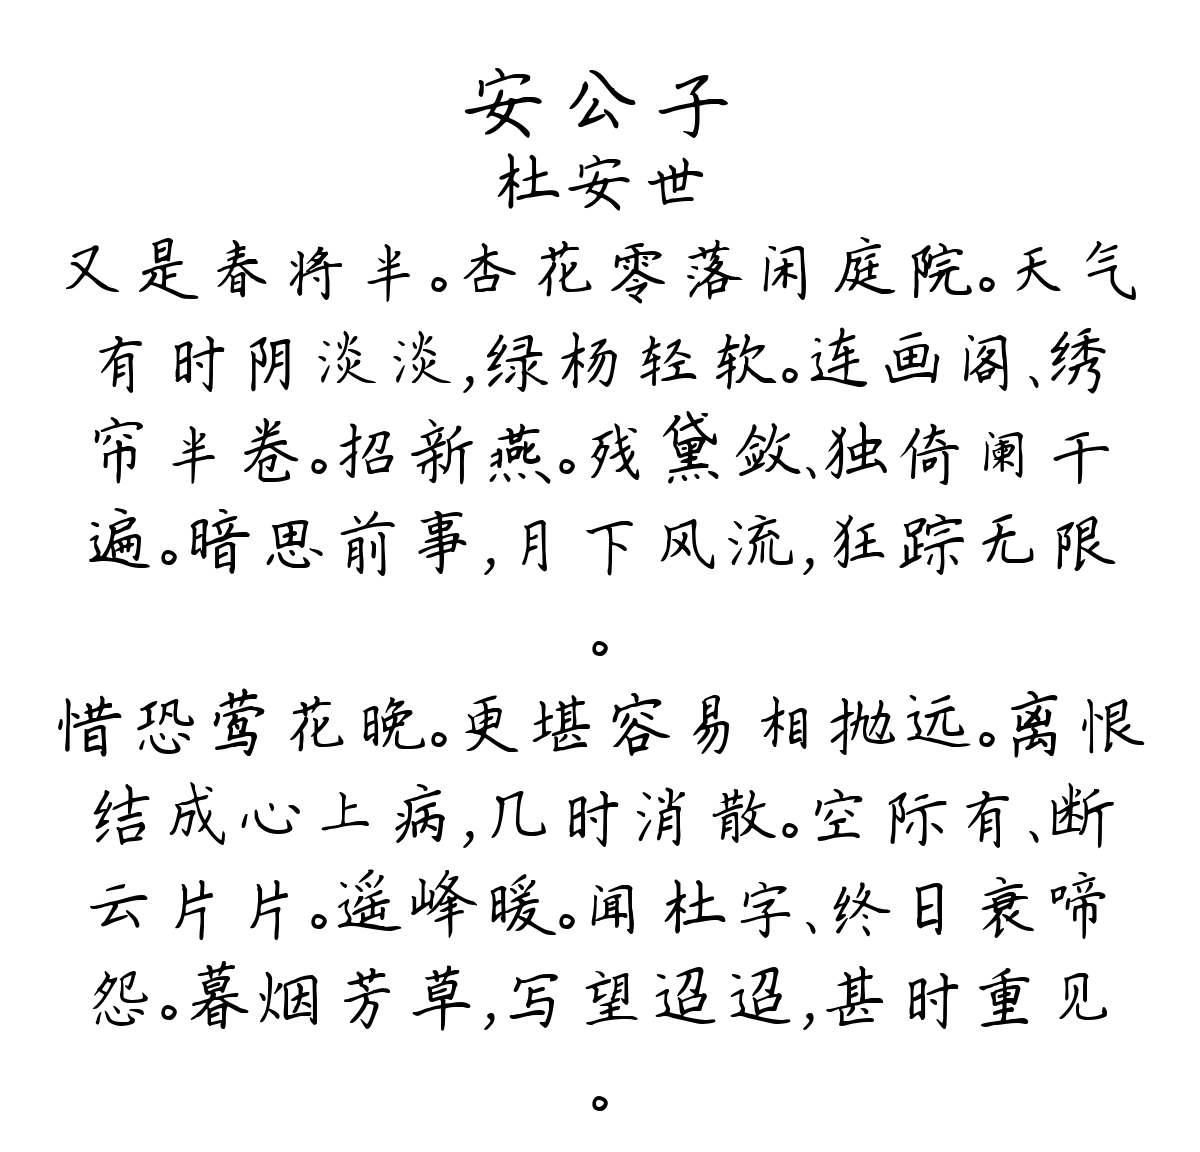 安公子
杜安世
又是春将半。杏花零落闲庭院。天气
有时阴淡淡,绿杨轻软。连画阁、绣
帘半卷。招新燕。残黛敛、独倚阑干
遍。暗思前事,月下风流,狂踪无限
。
惜恐莺花晚。更堪容易相抛远。离恨
结成心上病,几时消散。空际有、断
云片片。遥峰暖。闻杜字、终日衰啼
怨。暮烟芳草,写望迢迢,甚时重见
。